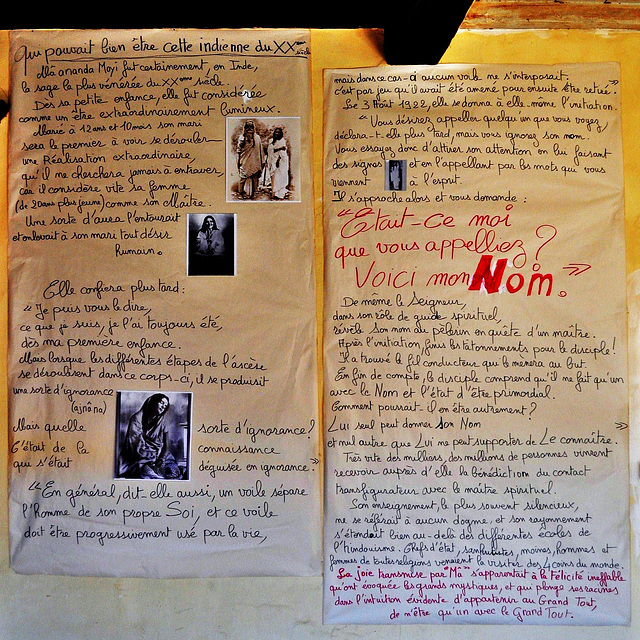 Qui pouvait bien être cette indienne du XXème siècle
Mâ ananda Moyî fut certainement, en Inde,
la sage la plus vénérée du XXème siècle.
Dès sa petite enfance, elle fut considérée
comme un être extraordinairement lumineux.
Mariée à 12 ans et 10 mois son mari
sera le premier à voir se dérouler
une Réalisation extraordinaire,
qu'il ne cherchera jamais à entraver,
car il considère vite sa femme
(de 20 ans plus jeune) comme son Maître.
Une sorte d'aura l'entourait
et enlevait à son mari tout désir
humain.
Elle confiera plus tard:
"Je puis vous le dire,
ce que je suis, je l'ai toujours été,
dès ma première enfance.
Mais lorsque les différentes étapes de l'ascèse
se déroulèrent dans ce corps-ci, il se produisit
une sorte d'ignorance
(ajnâna)
Mais quelle sorte d'ignorance?
C'était de la connaissance
qui s'était déguisée en ignorance."
"En général, dit-elle aussi, un voile sépare
l'homme de son propre Soi, et ce voile
doit être progressivement usé par la vie,
mais dans ce cas-là aucun voile ne s'interposait.
c'est par jeu qu'il avait été amené pour ensuite être retiré."
Le 3 Août 1922, elle se donna à elle-même l'initiation.
"Vous désirez appeler quelqu'un que vous voyez,
déclara-t-elle plus tard, mais vous ignorez son nom.
Vous essayez donc d'attirer son attention en lui faisant
des signes et en l'appellant par les mots qui vous
viennent à l'esprit.
Il s'approche alors et vous demande:
"Etait-ce moi
que vous appelliez?
Voici mon Nom."
De même le Seigneur,
dans son rôle de guide spirituel,
révèle son nom au pèlerin en quête d'un maître.
Après l'initiation, finis les tâtonnements pour le disciple!
Il a trouvé le fil conducteur qui le mènera au but.
En fin de compte, le disciple comprend qu'il ne fait qu'un
avec le Nom et l'état d'être primordial.
Comment pourrait-il en être autrement?
Lui seul peut donner son Nom
et nul autre que Lui ne peut supporter de Le connaître."
Très vite des milliers, des millions de personnes vinrent
recevoir auprès d'elle la bénédiction du contact
transfigurateur avec le maître spirituel.
Son enseignement, le plus souvent silencieux,
ne se référait à aucun dogme, et son rayonnement
s'étendait bien au-delà des différentes écoles de
l'hindouisme. Chefs d'état, saints, moines, hommes et
femmes de toutes religions venaient la visiter des 4 coins du monde.
La joie transmise par "Mâ" s'apparentait à la félicité ineffable
qu'ont évoquée les grands mystiques, et qui plonge ses racines
dans l'intuition évidente d'appartenir au Grand Tout,
de n'être qu'un avec le Grand Tout.